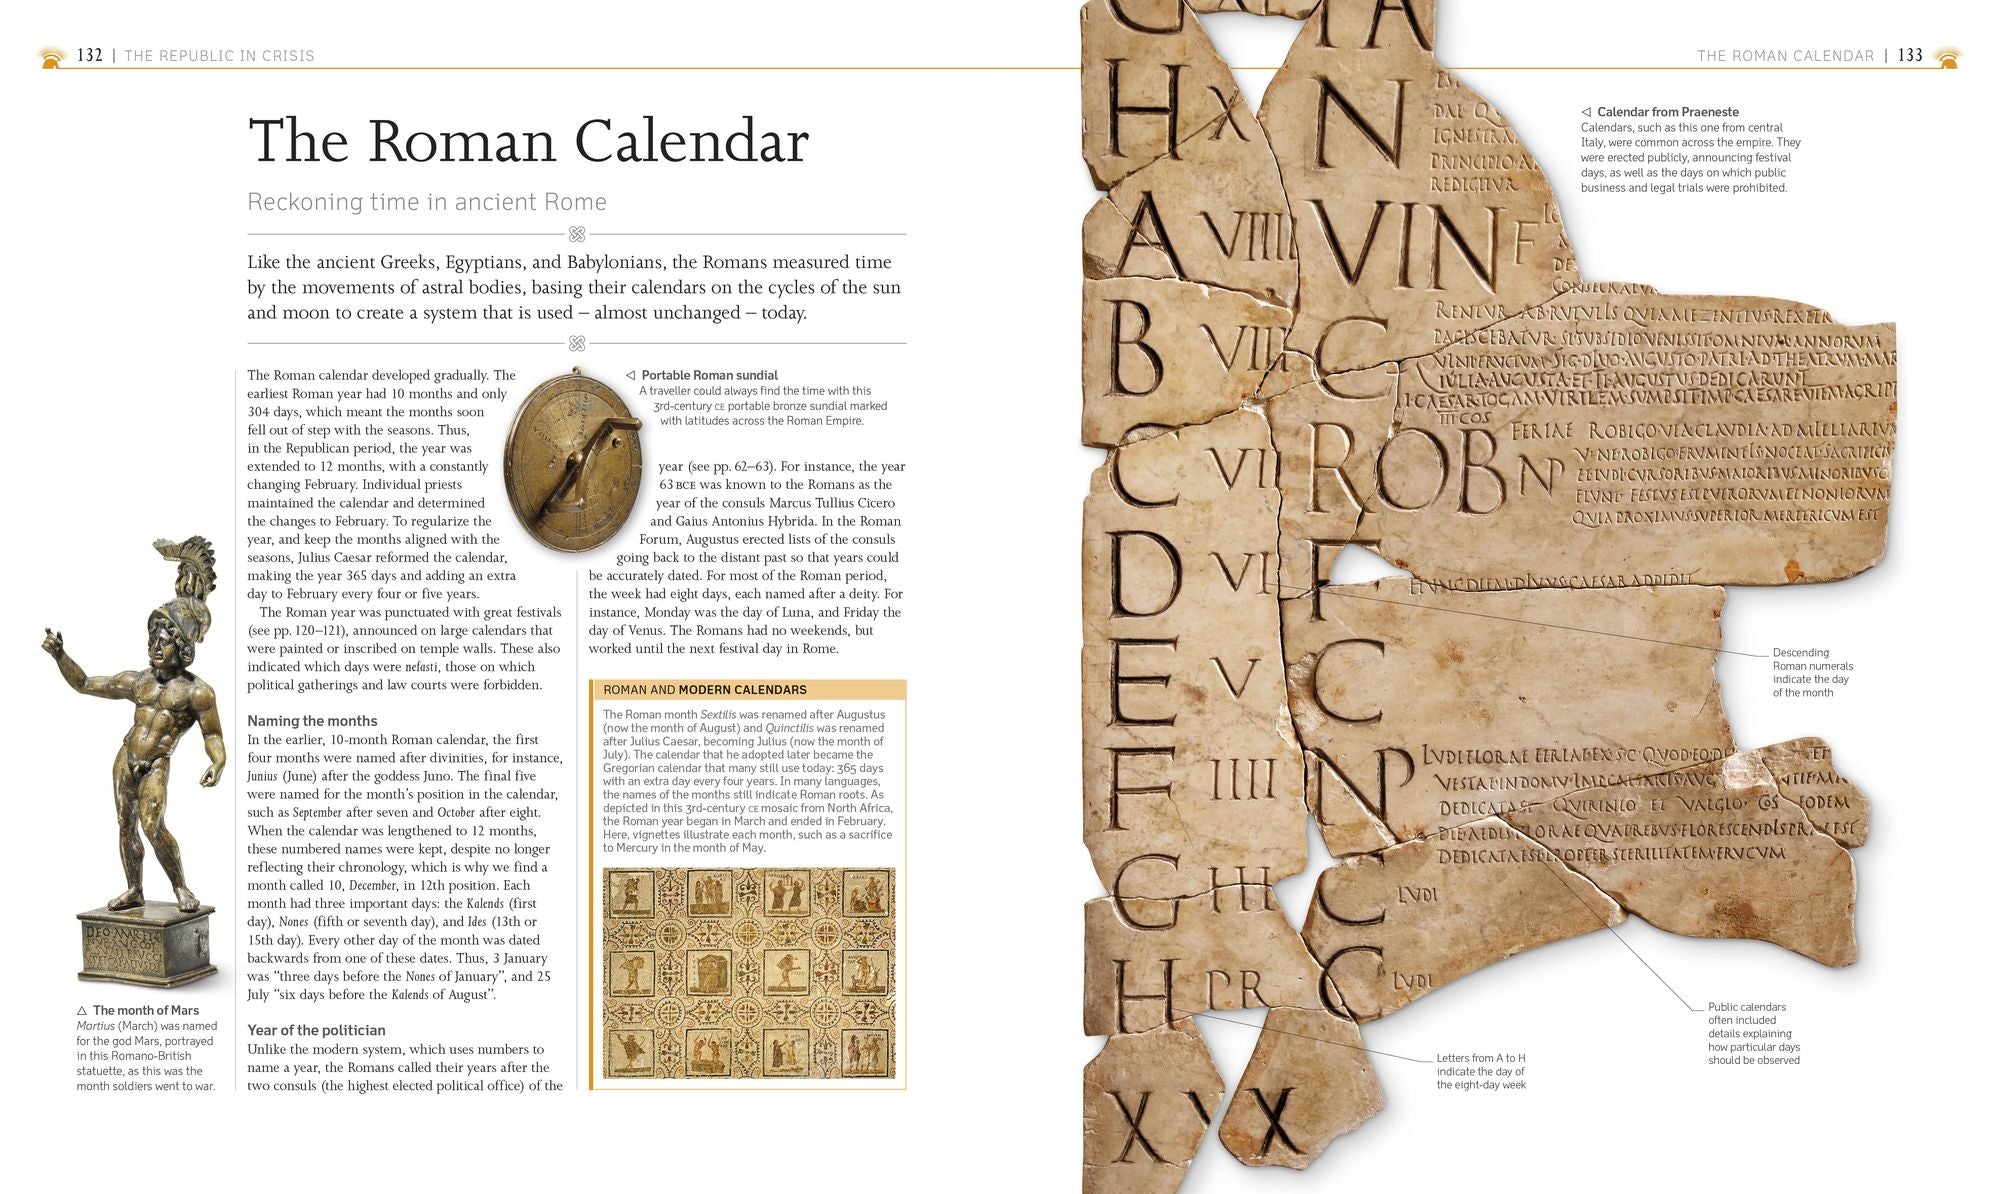 132 | THE REPUBLIC IN CRISIS
The Roman Calendar
Reckoning time in ancient Rome
Like the ancient Greeks, Egyptians, and Babylonians, the Romans measured time
by the movements of astral bodies, basing their calendars on the cycles of the sun
and moon to create a system that is used – almost unchanged – today.
The Roman calendar developed gradually. The
earliest Roman year had 10 months and only
304 days, which meant the months soon
fell out of step with the seasons. Thus,
in the Republican period, the year was
extended to 12 months, with a constantly
changing February. Individual priests
maintained the calendar and determined
the changes to February. To regularize the
year, and keep the months aligned with the
seasons, Julius Caesar reformed the calendar,
making the year 365 days and adding an extra
day to February every four or five years.
The Roman year was punctuated with great festivals
(see pp. 120–121), announced on large calendars that
were painted or inscribed on temple walls. These also
indicated which days were nefasti, those on which
political gatherings and law courts were forbidden.
Naming the months
In the earlier, 10-month Roman calendar, the first
four months were named after divinities, for instance,
Junius (June) after the goddess Juno. The final five
were named for the month's position in the calendar,
such as September after seven and October after eight.
When the calendar was lengthened to 12 months,
these numbered names were kept, despite no longer
reflecting their chronology, which is why we find a
month called 10, December, in 12th position. Each
month had three important days: the Kalends (first
day), Nones (fifth or seventh day), and Ides (13th or
15th day). Every other day of the month was dated
backwards from one of these dates. Thus, 3 January
was “three days before the Nones of January”, and 25
July “six days before the Kalends of August”.
Year of the politician
Unlike the modern system, which uses numbers to
name a year, the Romans called their years after the
two consuls (the highest elected political office) of the
◁ Portable Roman sundial
A traveller could always find the time with this
3rd-century CE portable bronze sundial marked
with latitudes across the Roman Empire.
year (see pp. 62–63). For instance, the year
63 BCE was known to the Romans as the
year of the consuls Marcus Tullius Cicero
and Gaius Antonius Hybrida. In the Roman
Forum, Augustus erected lists of the consuls
going back to the distant past so that years could
be accurately dated. For most of the Roman period,
the week had eight days, each named after a deity. For
instance, Monday was the day of Luna, and Friday the
day of Venus. The Romans had no weekends, but
worked until the next festival day in Rome.
ROMAN AND MODERN CALENDARS
The Roman month Sextilis was renamed after Augustus
(now the month of August) and Quinctilis was renamed
after Julius Caesar, becoming Julius (now the month of
July). The calendar that he adopted later became the
Gregorian calendar that many still use today: 365 days
with an extra day every four years. In many languages,
the names of the months still indicate Roman roots. As
depicted in this 3rd-century CE mosaic from North Africa,
the Roman year began in March and ended in February.
Here, vignettes illustrate each month, such as a sacrifice
to Mercury in the month of May.
△ The month of Mars
Martius (March) was named
for the god Mars, portrayed
in this Romano-British
statuette, as this was the
month soldiers went to war.
THE ROMAN CALENDAR | 133
◁ Calendar from Praeneste
Calendars, such as this one from central
Italy, were common across the empire. They
were erected publicly, announcing festival
days, as well as the days on which public
business and legal trials were prohibited.
H X N
PRINCIPIO
REDIGITVR
A VIIII VIN F
B VIII C
C VII ROB NP
FERIAE ROBIGO VIA CLAVDIA AD MILLIARIVM
QVIA PROXIMVS SVPERIOR MERETRICVM EST
D VI F
E V C
F IIII NP
G III C LVDI
H PR C LVDI
XX X
Descending
Roman numerals
indicate the day
of the month
Public calendars
often included
details explaining
how particular days
should be observed
Letters from A to H
indicate the day of
the eight-day week